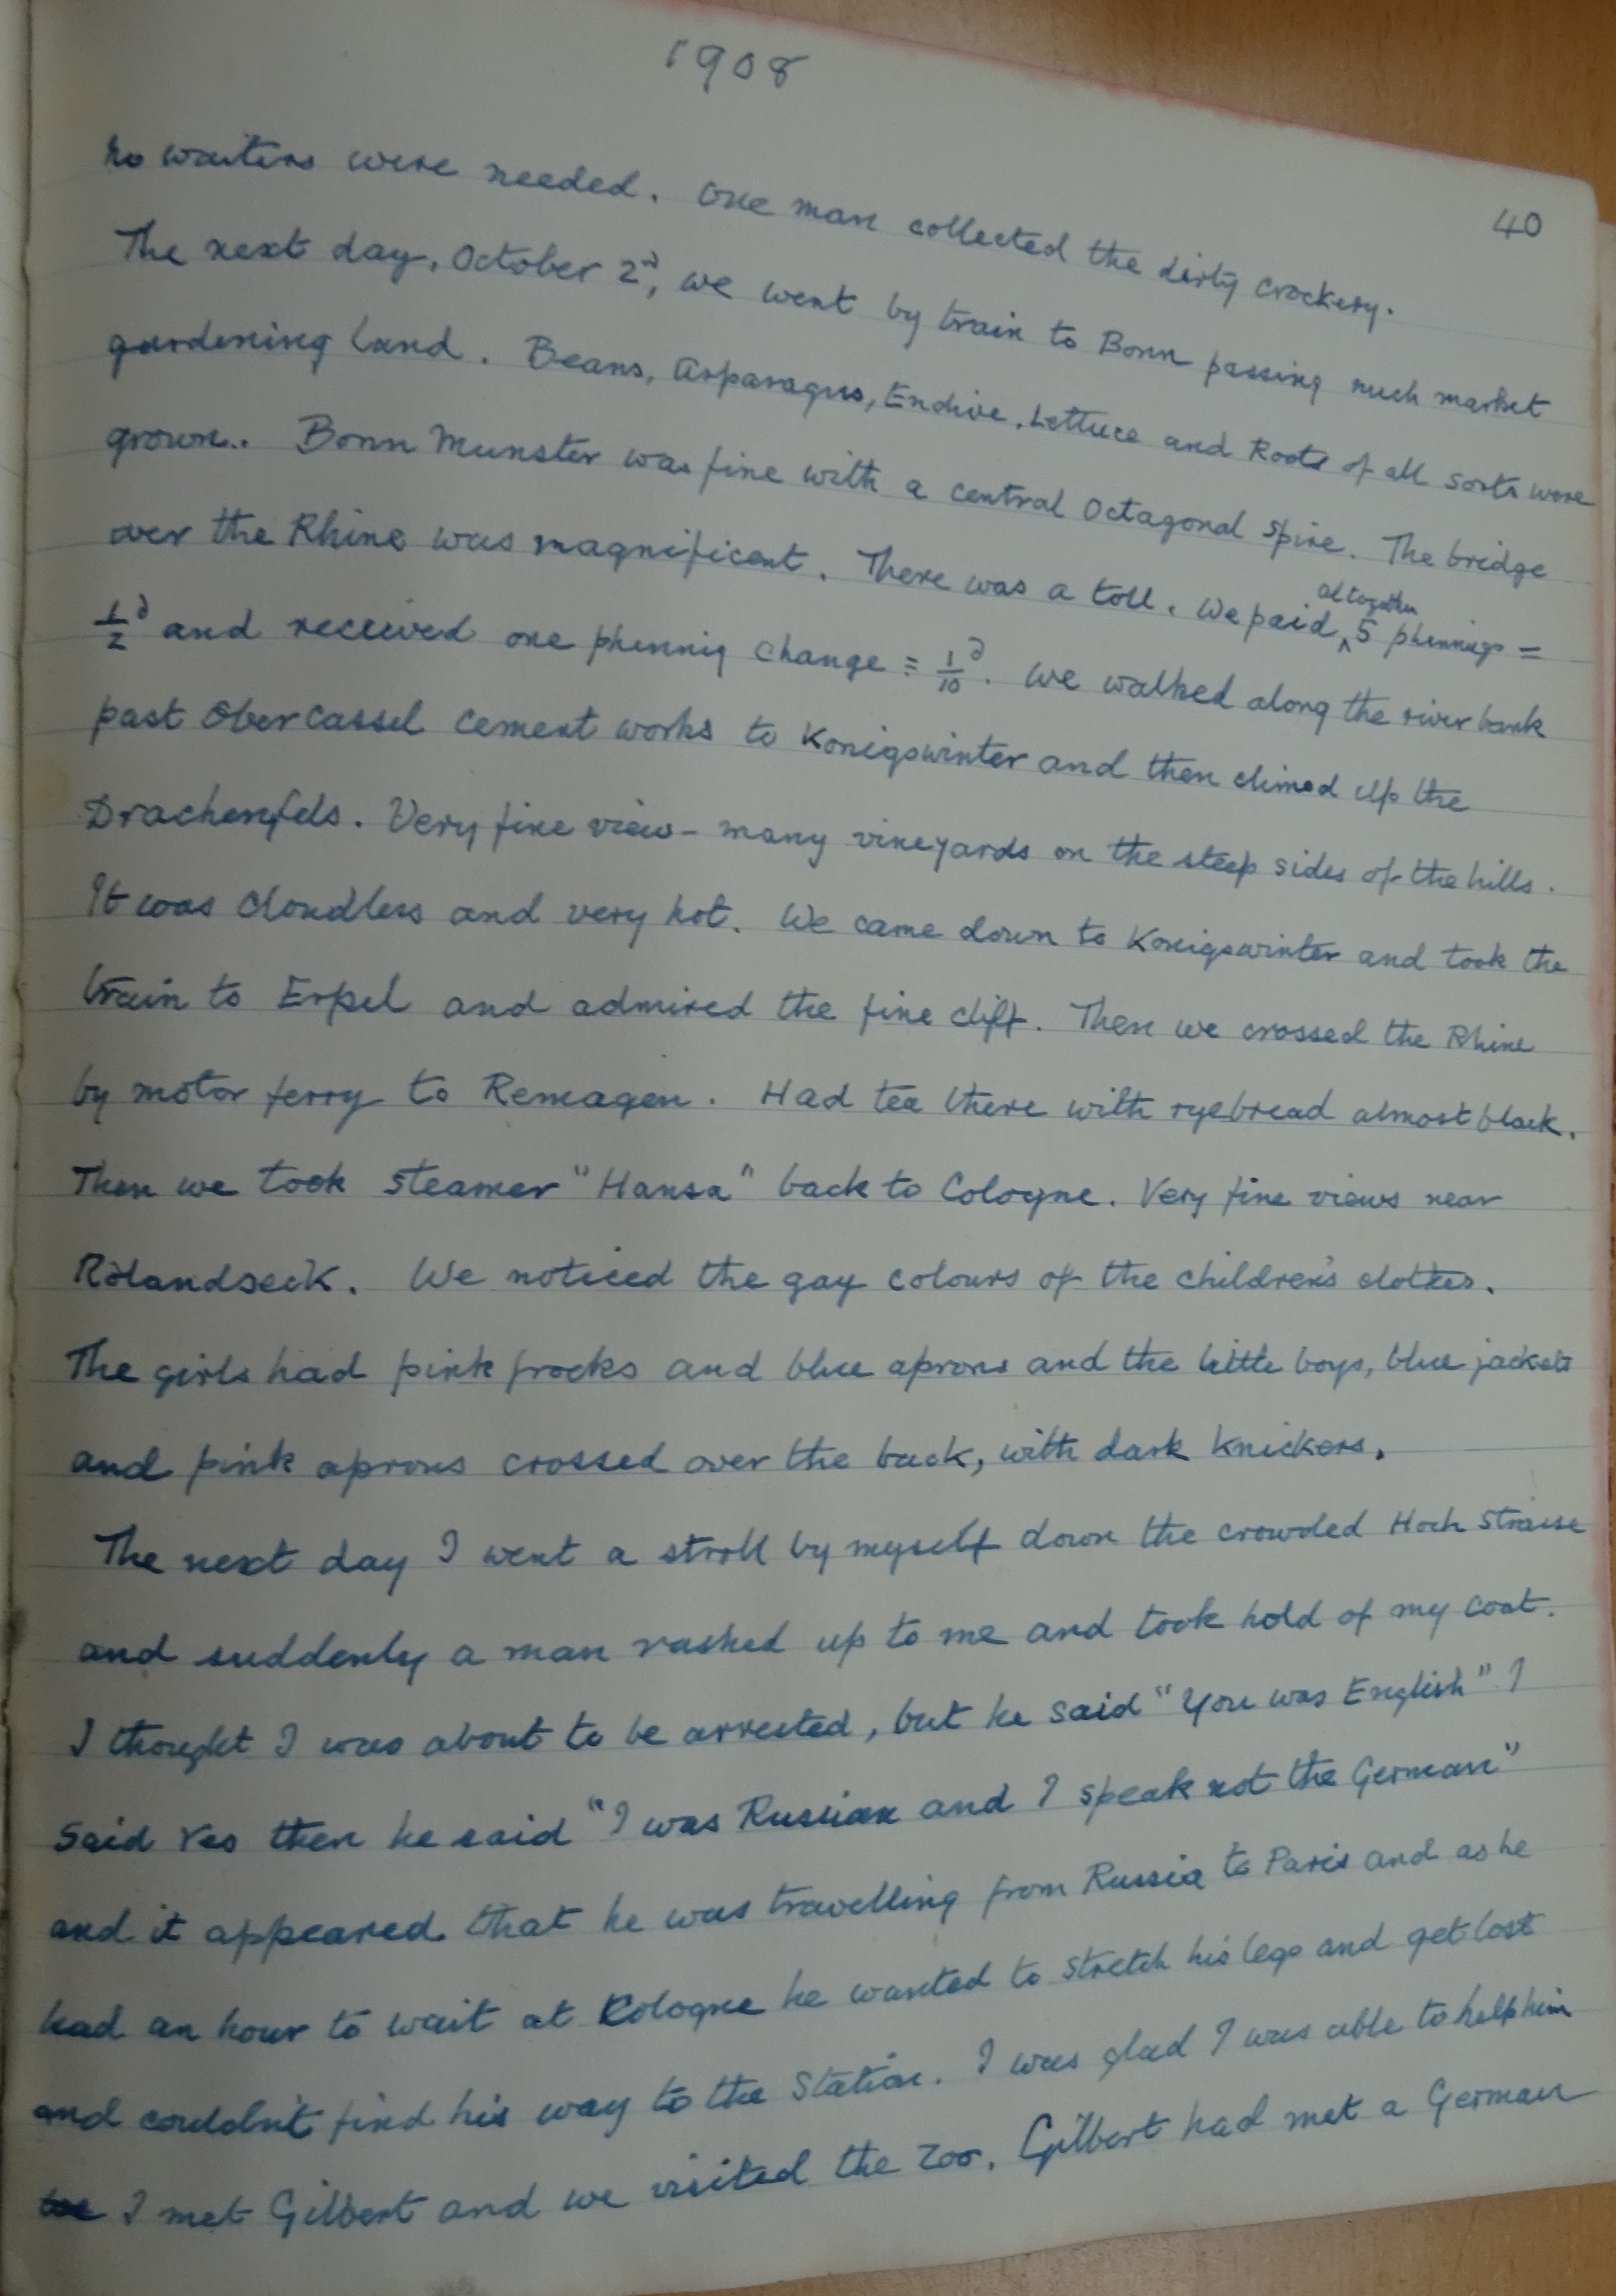 1908
40
no waiters were needed. One man collected the dirty crockery.
The next day, October 2d, we went by train to Bonn passing much market
gardening land. Beans, Asparagus, Endive, Lettuce and Roots of all sorts were
grown. Bonn Munster was fine with a central Octagonal spire. The bridge
over the Rhine was magnificent. There was a toll. We paid altogether 5 phennigs =
1/2d and received one phennig change = 1/10d. We walked along the river bank
past Obercassel cement works to Konigswinter and then climed up the
Drachenfels. Very fine view - many vineyards on the steep sides of the hills.
It was cloudless and very hot. We came down to Konigswinter and took the
train to Erpel and admired the fine cliff. Then we crossed the Rhine
by motor ferry to Remagen. Had tea there with ryebread almost black.
Then we took steamer "Hansa" back to Cologne. Very fine views near
Rolandseck. We noticed the gay colours of the children's clothes.
The girls had pink frocks and blue aprons and the little boys, blue jackets
and pink aprons crossed over the back, with dark knickers.
The next day I went a stroll by myself down the crowded Hoch Strasse
and suddenly a man rushed up to me and took hold of my coat.
I thought I was about to be arrested, but he said "You was English" I
said Yes then he said "I was Russian and I speak not the German"
and it appeared that he was travelling from Russia to Paris and as he
had an hour to wait at Cologne he wanted to stretch his legs and get lost
and couldn't find his way to the Station. I was glad I was able to help him
I met Gilbert and we visited the Zoo. Gilbert had met a German